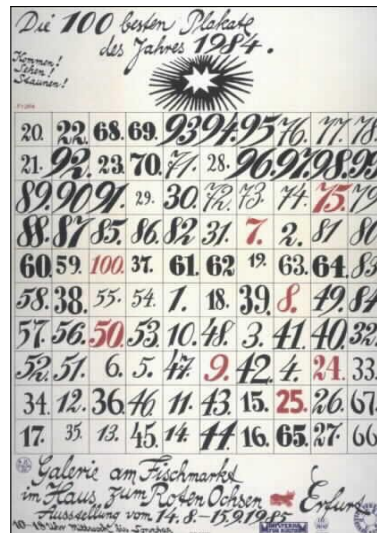 Die 100 besten Plakate
des Jahres 1984.
Kommen!
Sehen!
Staunen!
20. 22. 68. 69. 93. 94. 95. 76. 77. 78.
21. 92. 23. 70. 71. 28. 96. 97. 98. 99.
89. 90. 91. 29. 30. 72. 73. 74. 75. 79.
88. 87. 85. 86. 82. 31. 7. 2. 81. 80.
60. 59. 100. 37. 61. 62. 19. 63. 64. 83.
58. 38. 55. 54. 1. 18. 39. 8. 49. 84.
57. 56. 50. 53. 10. 48. 3. 41. 40. 32.
52. 51. 6. 5. 47. 9. 42. 4. 24. 33.
34. 12. 36. 46. 11. 43. 15. 25. 26. 67.
17. 35. 13. 45. 14. 44. 16. 65. 27. 66.
Galerie am Fischmarkt
im Haus zum Roten Ochsen Erfurt
Ausstellung vom 14.8.–15.9.1985
10–18 Uhr Mittwoch bis